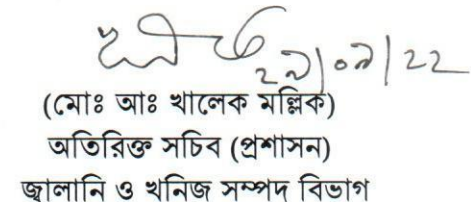 ২৯/০৯/২২
(মোঃ আঃ খালেক মল্লিক)
অতিরিক্ত সচিব (প্রশাসন)
জ্বালানি ও খনিজ সম্পদ বিভাগ